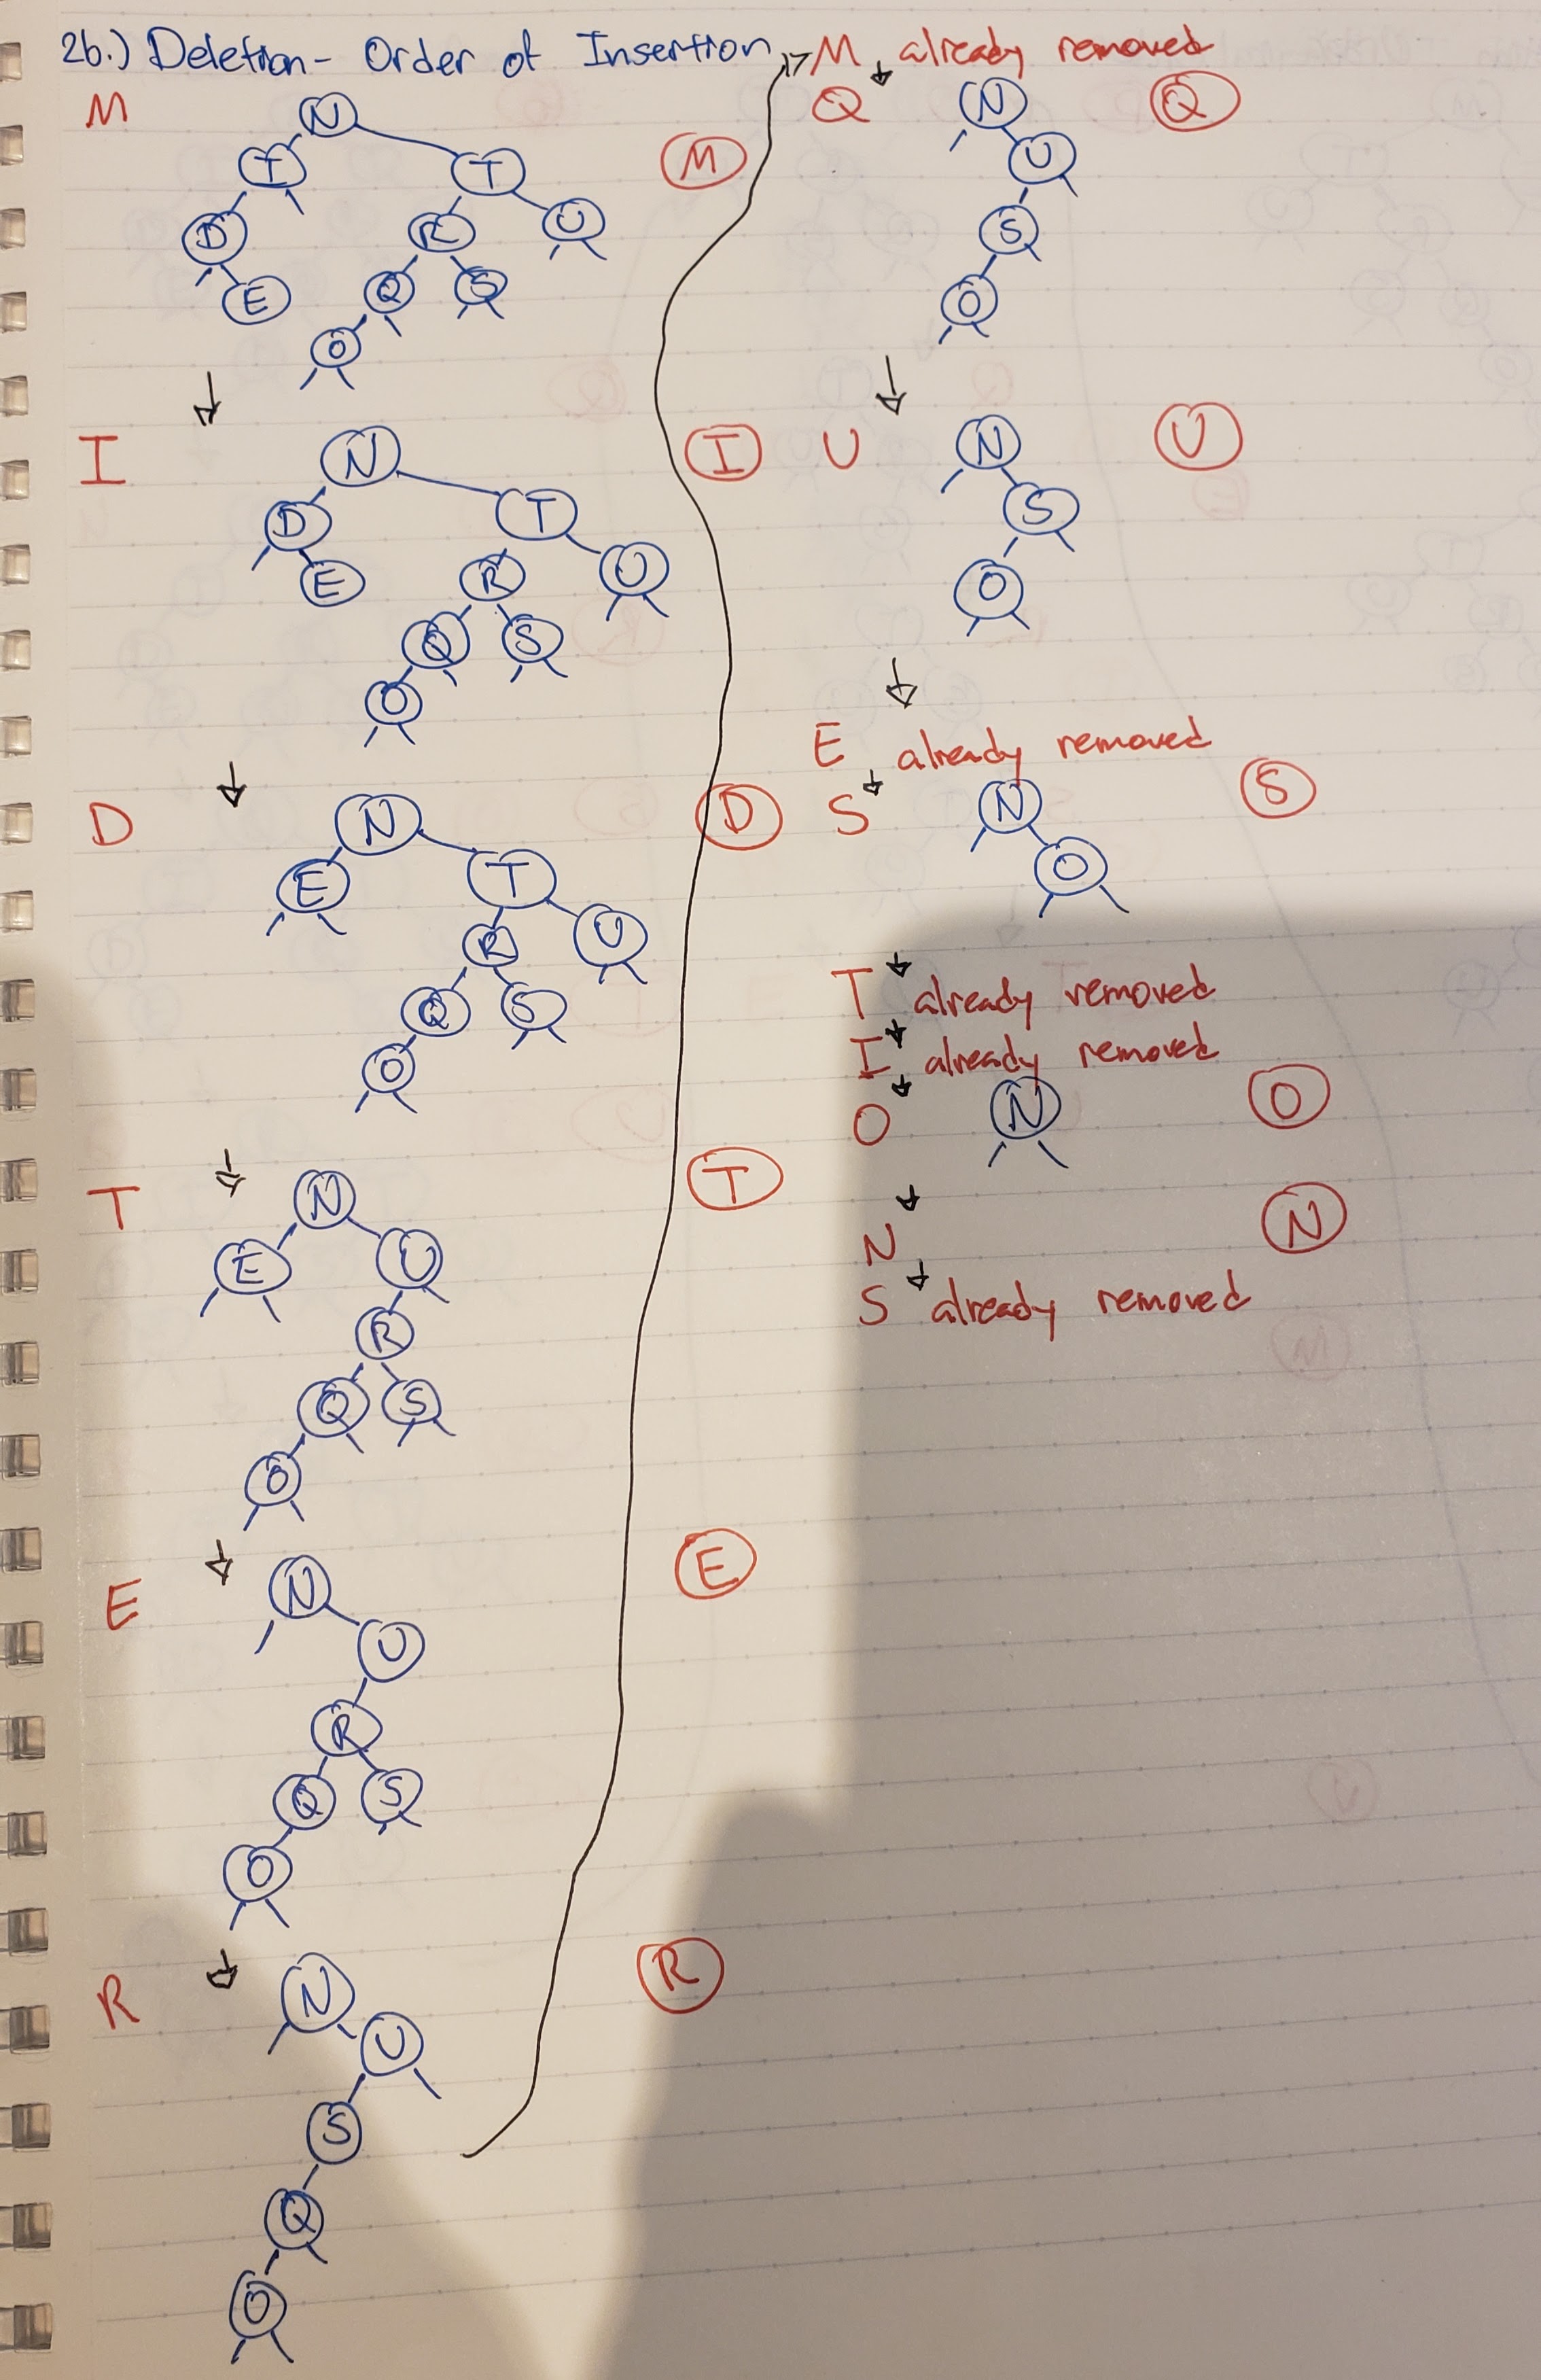 2b.) Deletion - Order of Insertion
M
N
I T
D R U
E Q S
O
M
I
N
D T
E R U
Q S
O
I
D
N
E T
R U
Q S
O
D
T
N
E U
R
Q S
O
T
E
N
U
R
Q S
O
E
R
N
U
S
Q
O
R
M already removed
Q
N
U
S
O
Q
U
N
S
O
U
E already removed
S
N
O
S
T already removed
I already removed
O
N
O
N
N
S already removed